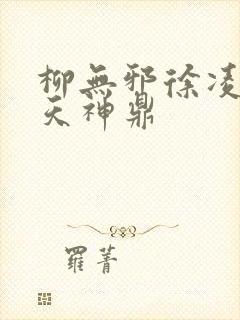 柳無邪徐凌
天神鼎
羅菁